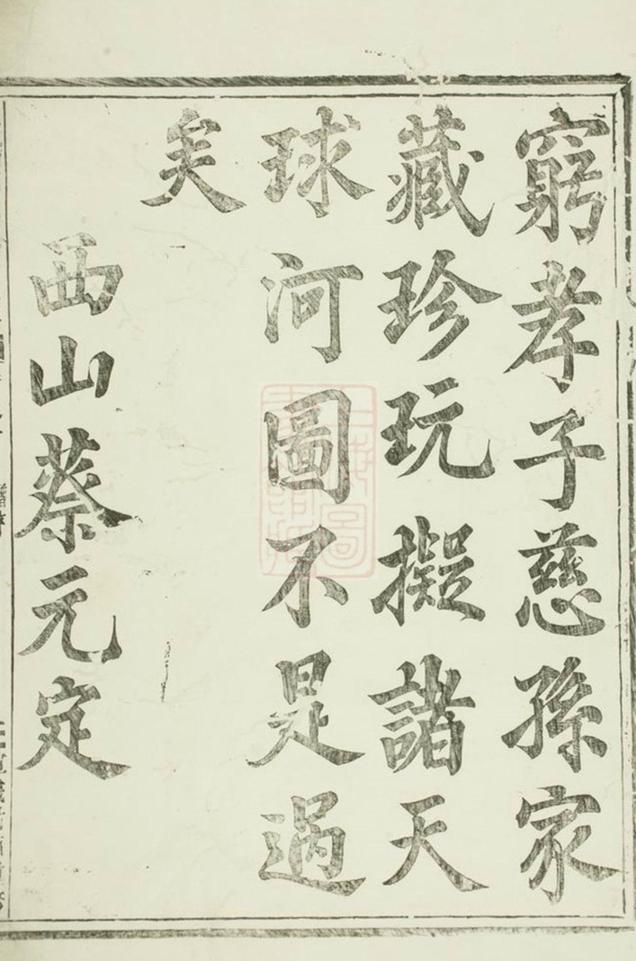 窮孝子慈孫家
藏珍玩擬諸天
球河圖不是過
矣
西山蔡元定